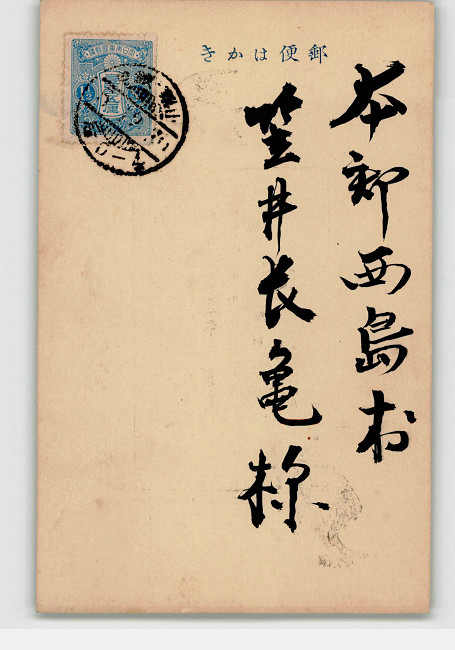 郵便はかき
本郡西島村
笠井長亀様